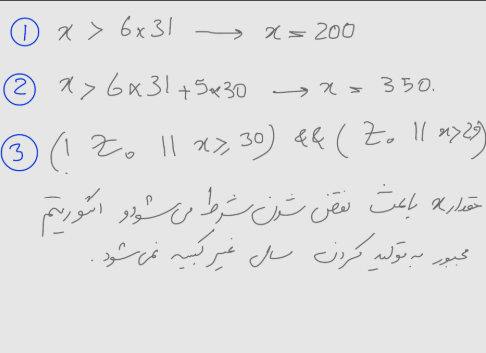 ① x > 6×31 → x = 200
② x > 6×31+5×30 → x = 350.
③ (! Z₀ || x ≥ 30) && ( Z₀ || x>29)
مقدار x باعث نقض شدن شرط می‌شود و الگوریتم
مجبور به تولید کردن سال غیر کبیسه نمی‌شود.